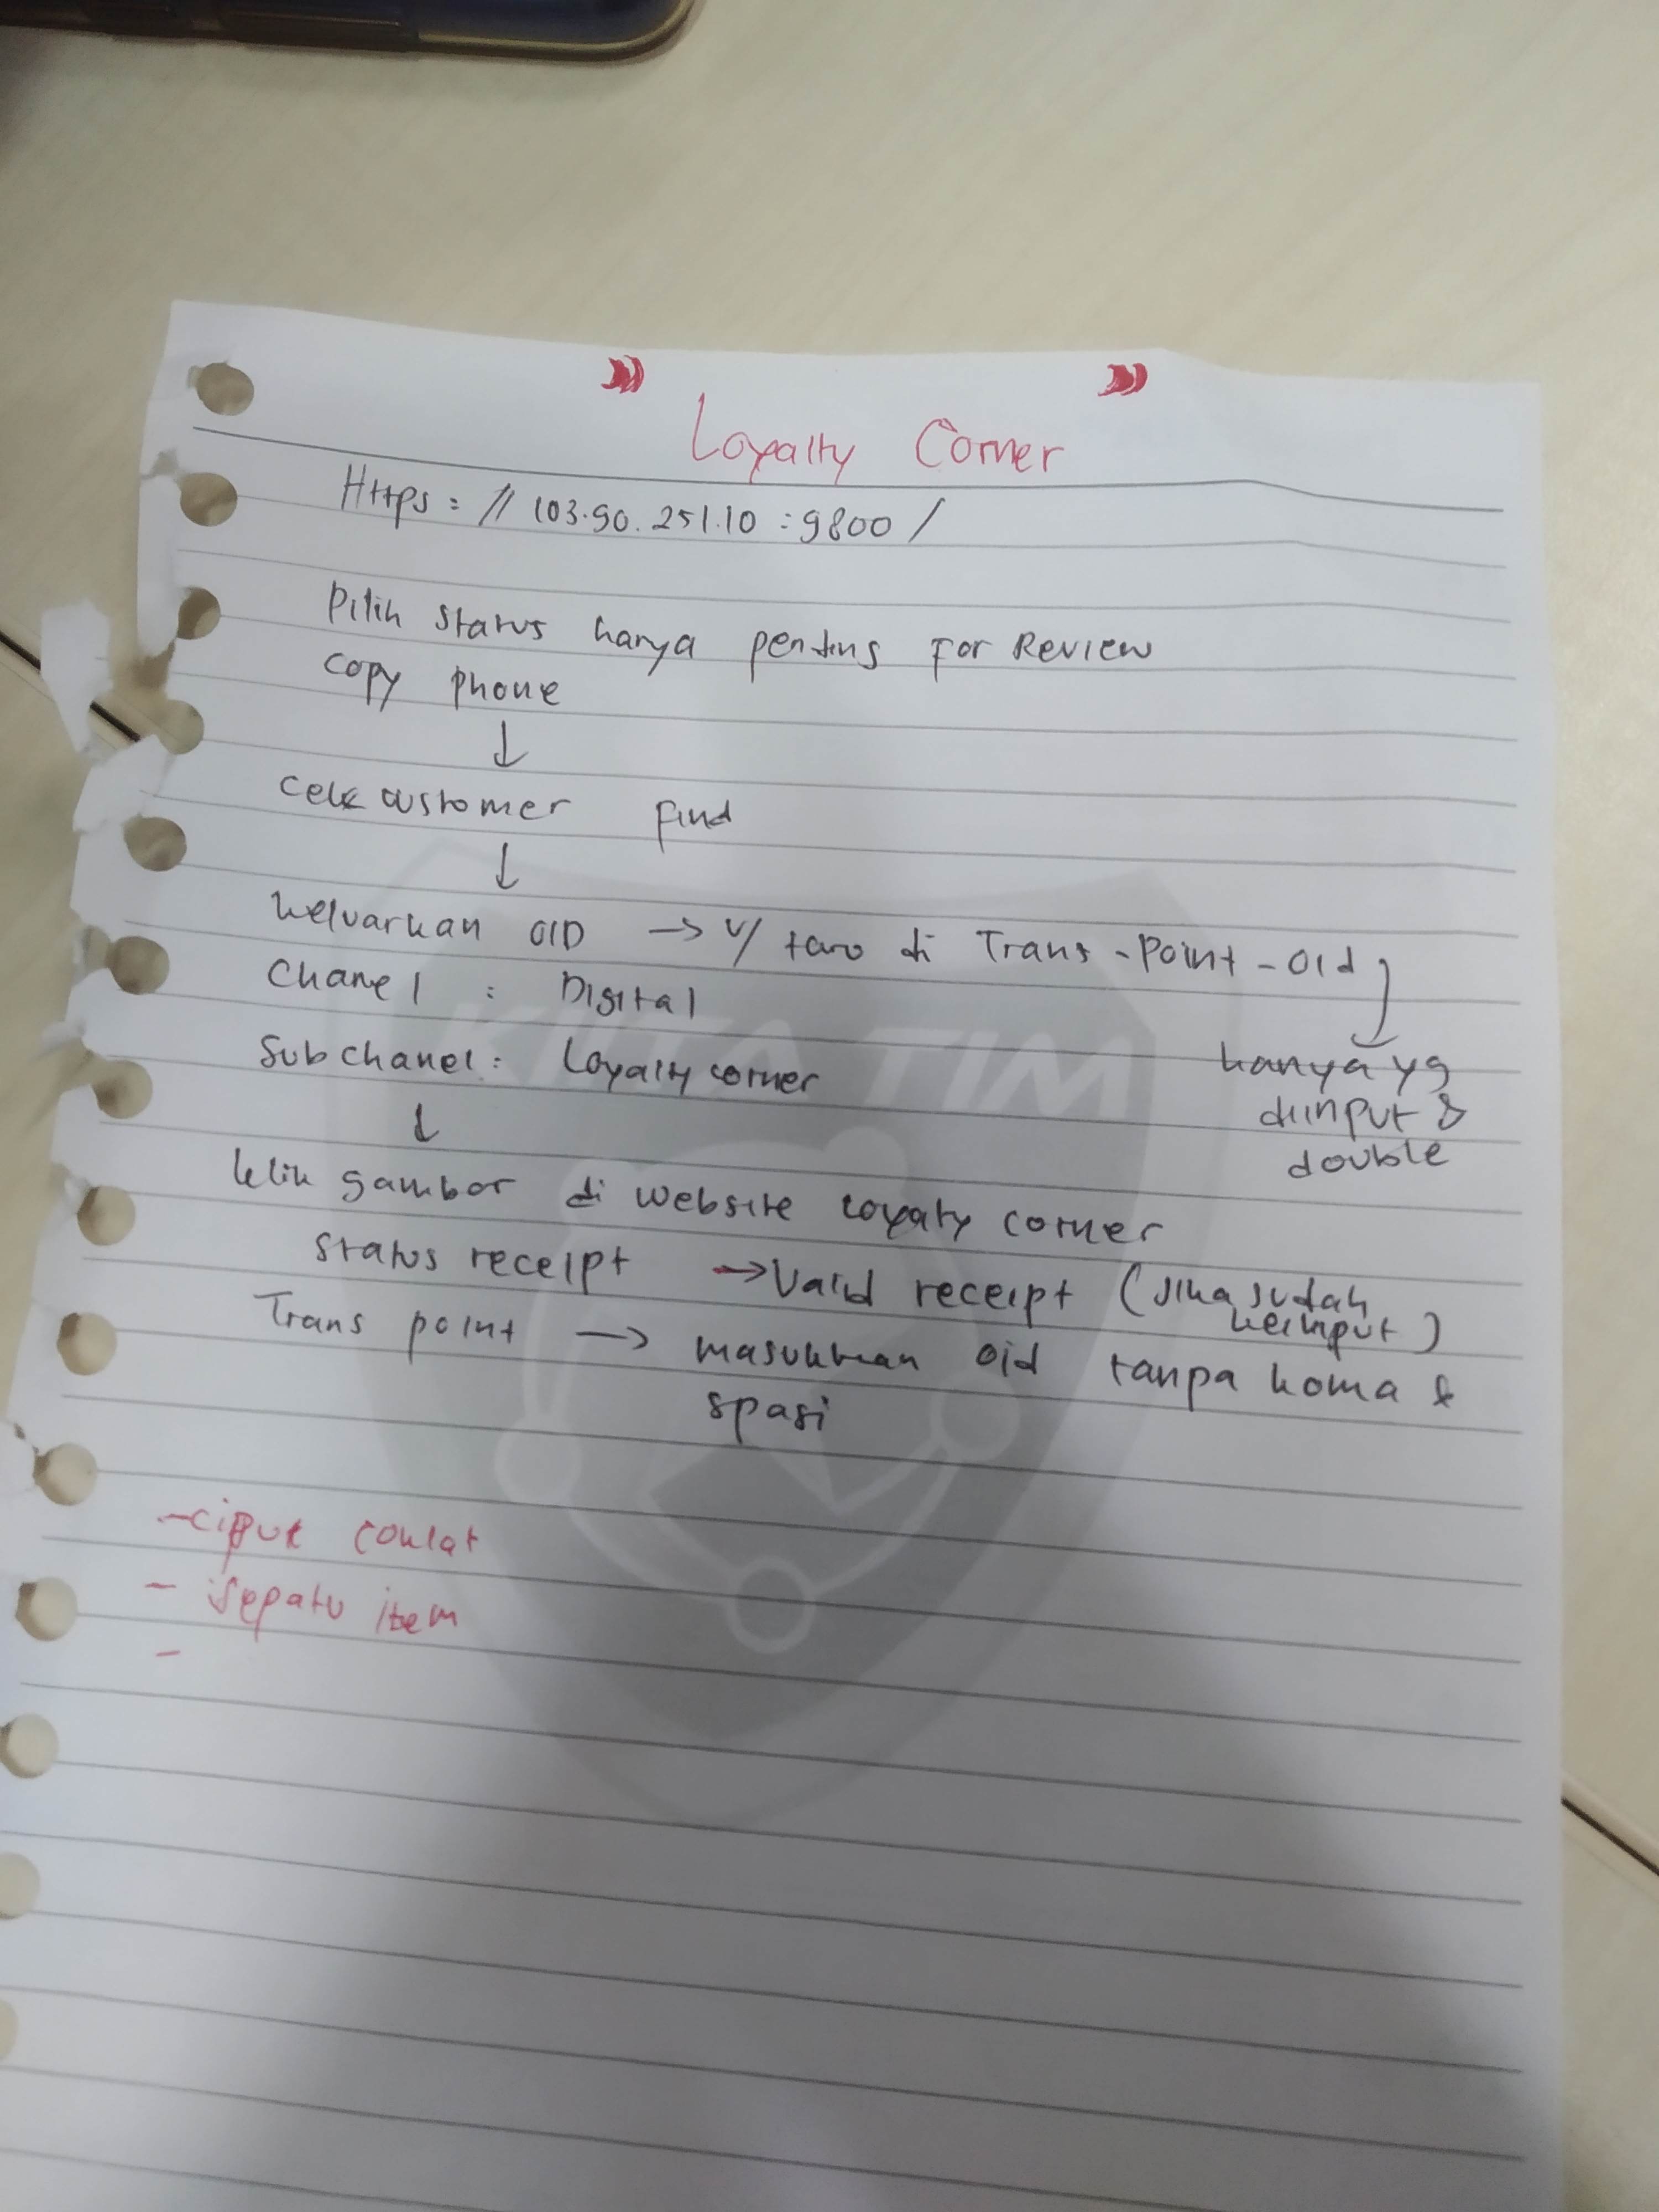 Loyalty Corner
Https : // 103.90.251.10 : 9800 /
Pilih status hanya pending For Review
copy phone
↓
cek customer find
↓
keluarkan OID → u/ taro di Trans - Point - Oid
Chanel : Digital
hanya yg
Sub chanel : Loyalty corner
diinput &
double
↓
klik gambar di website loyalty corner
status receipt → Valid receipt (jika sudah
keinput)
Trans point → masukkan oid tanpa koma &
spasi
- coklat
- sepatu item
-
KIITA TIM